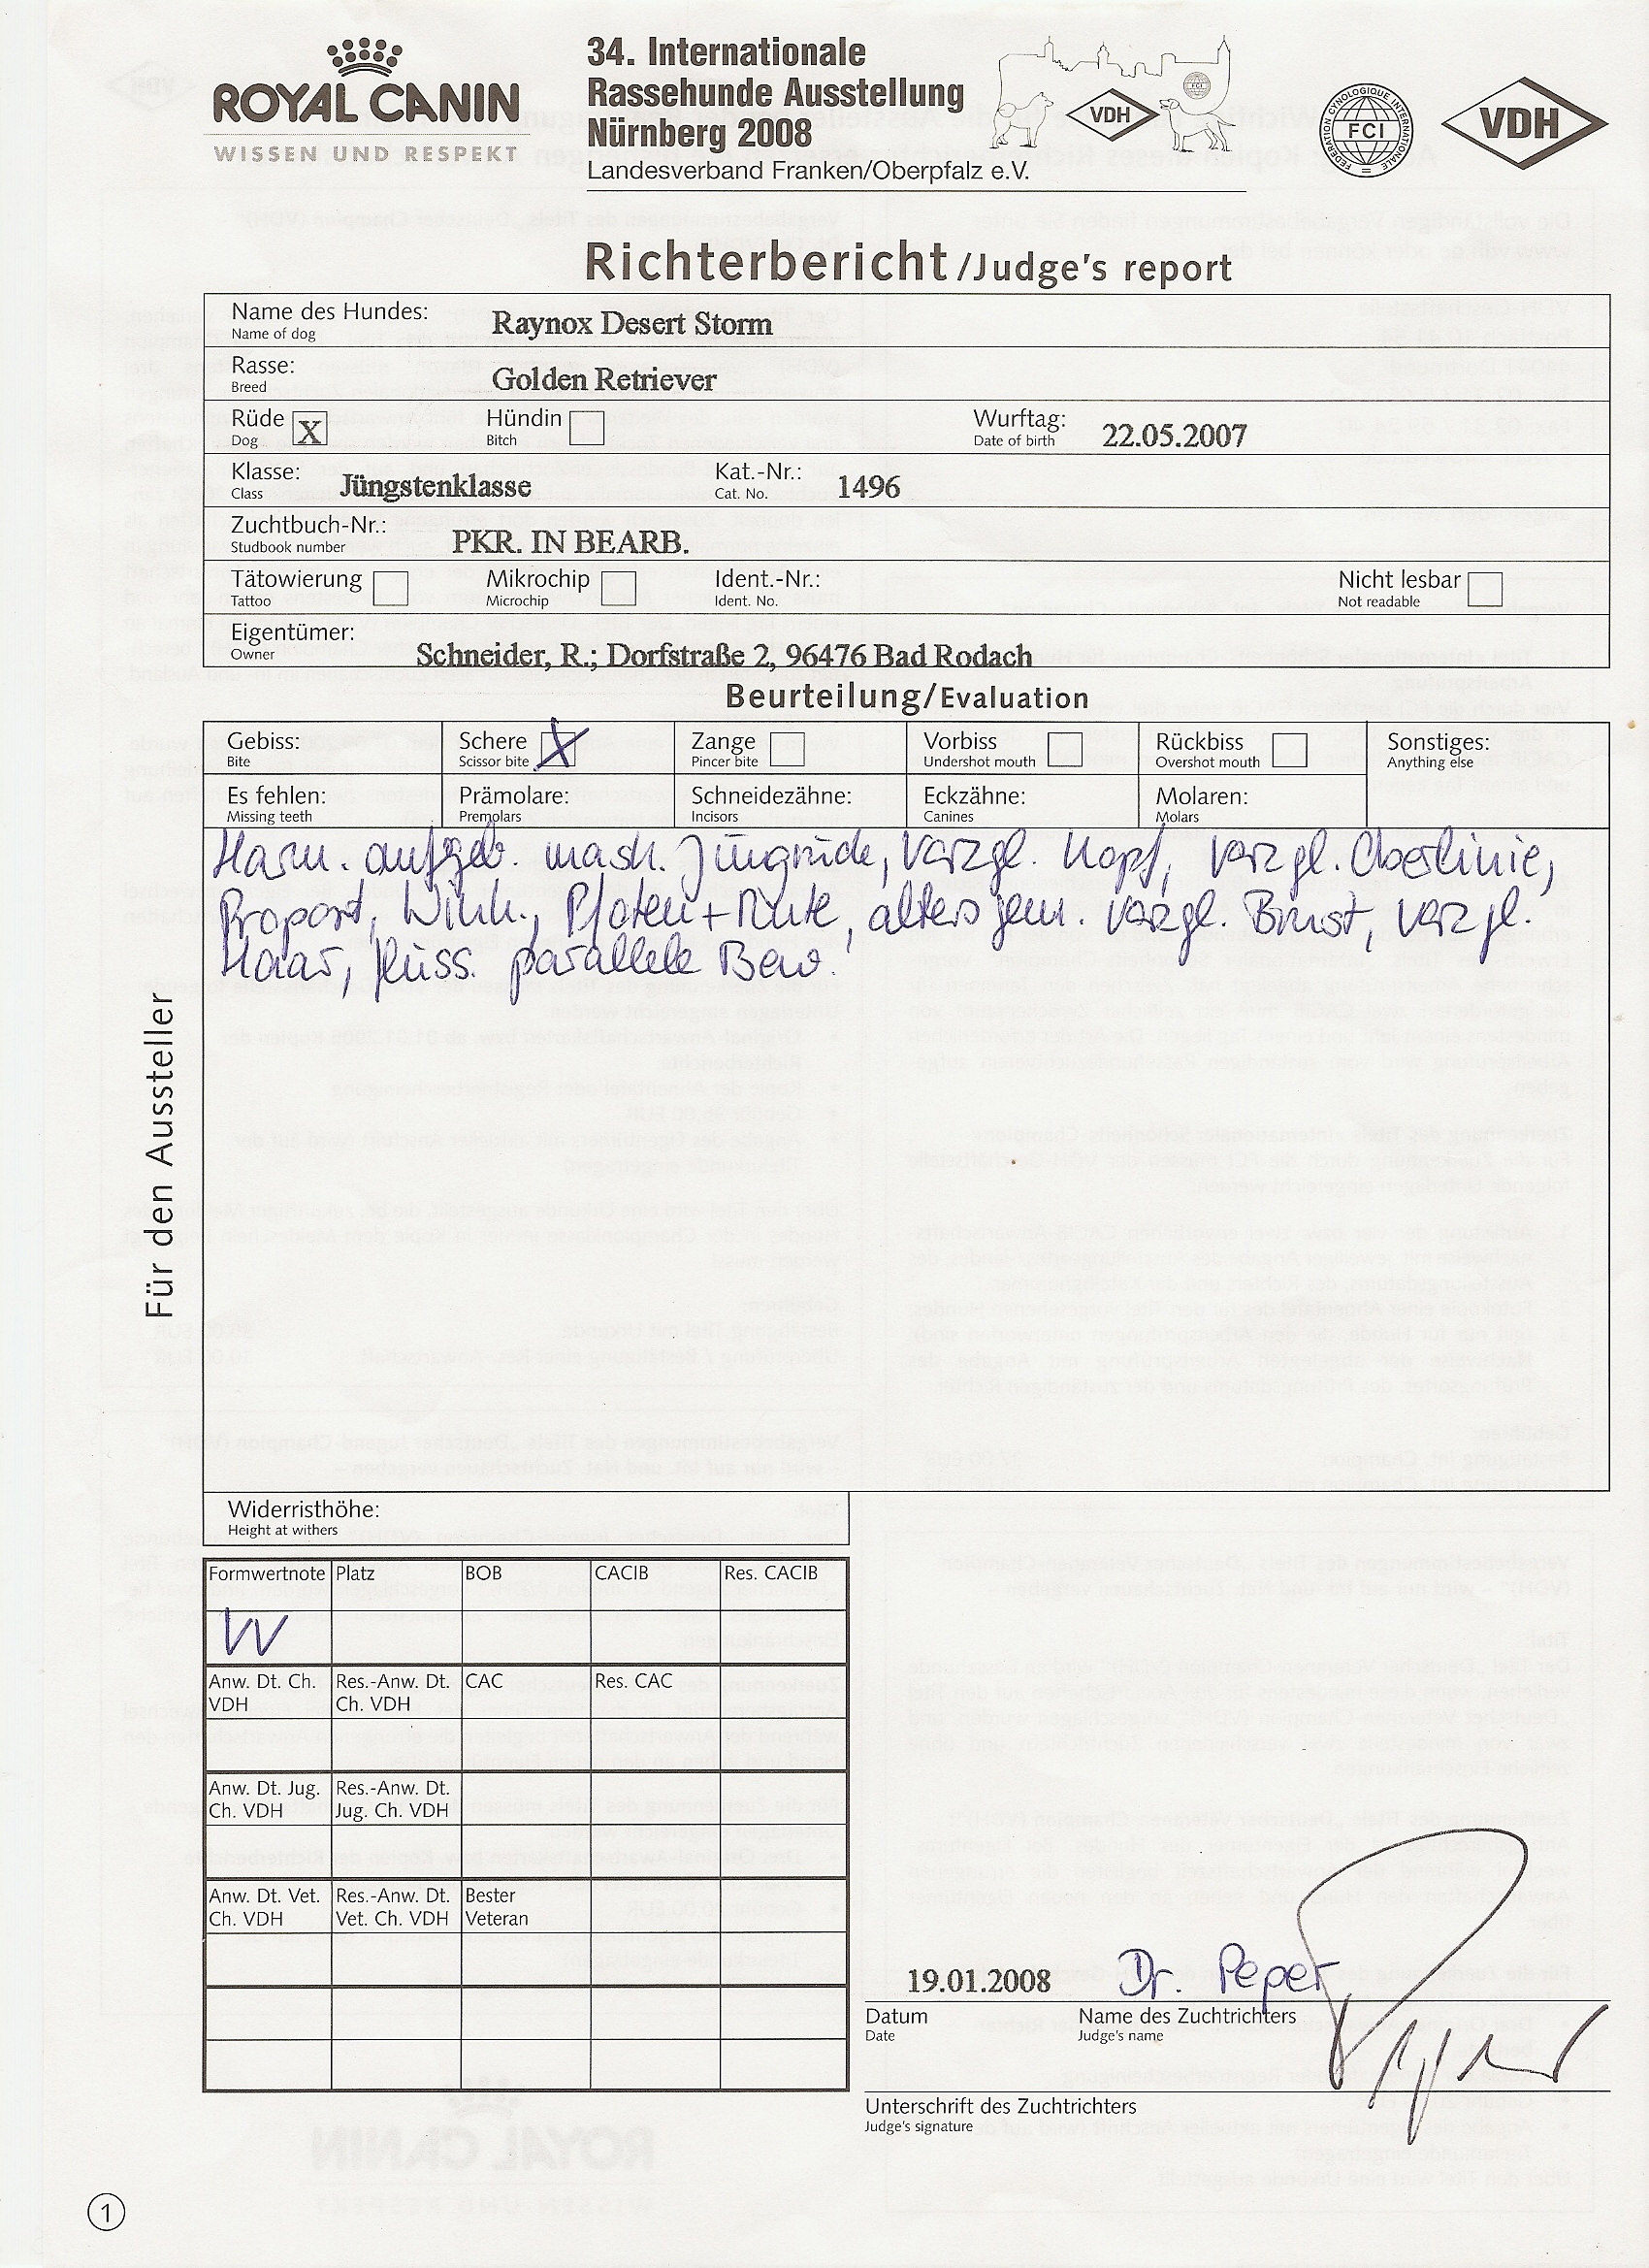 ROYAL CANIN
WISSEN UND RESPEKT
34. Internationale
Rassehunde Ausstellung
Nürnberg 2008
Landesverband Franken/Oberpfalz e.V.
VDH
FCI
FEDERATION CYNOLOGIQUE INTERNATIONALE
VDH
Richterbericht/Judge's report
Name des Hundes: Raynox Desert Storm
Name of dog
Rasse: Golden Retriever
Breed
Rüde X Hündin Wurftag: 22.05.2007
Dog Bitch Date of birth
Klasse: Jüngstenklasse Kat.-Nr.: 1496
Class Cat. No.
Zuchtbuch-Nr.: PKR. IN BEARB.
Studbook number
Tätowierung Mikrochip Ident.-Nr.: Nicht lesbar
Tattoo Microchip Ident. No. Not readable
Eigentümer: Schneider, R.; Dorfstraße 2, 96476 Bad Rodach
Owner
Beurteilung/Evaluation
Gebiss: Schere X Zange Vorbiss Rückbiss Sonstiges:
Bite Scissor bite Pincer bite Undershot mouth Overshot mouth Anything else
Es fehlen: Prämolare: Schneidezähne: Eckzähne: Molaren:
Missing teeth Premolars Incisors Canines Molars
Harm. aufgeb. mask. Jüngrüde, vorzgl. Kopf, vorzgl. Oberlinie,
Proport, Wink., Pfoten + Rute, altersgem. vorzgl. Brust, vorzgl.
Haar, flüss. parallele Bew.
Für den Aussteller
Widerristhöhe:
Height at withers
Formwertnote Platz BOB CACIB Res. CACIB
VV
Anw. Dt. Ch. Res.-Anw. Dt. CAC Res. CAC
VDH Ch. VDH
Anw. Dt. Jug. Res.-Anw. Dt.
Ch. VDH Jug. Ch. VDH
Anw. Dt. Vet. Res.-Anw. Dt. Bester
Ch. VDH Vet. Ch. VDH Veteran
19.01.2008 Dr. Peper
Datum Name des Zuchtrichters
Date Judge's name
Unterschrift des Zuchtrichters
Judge's signature
1